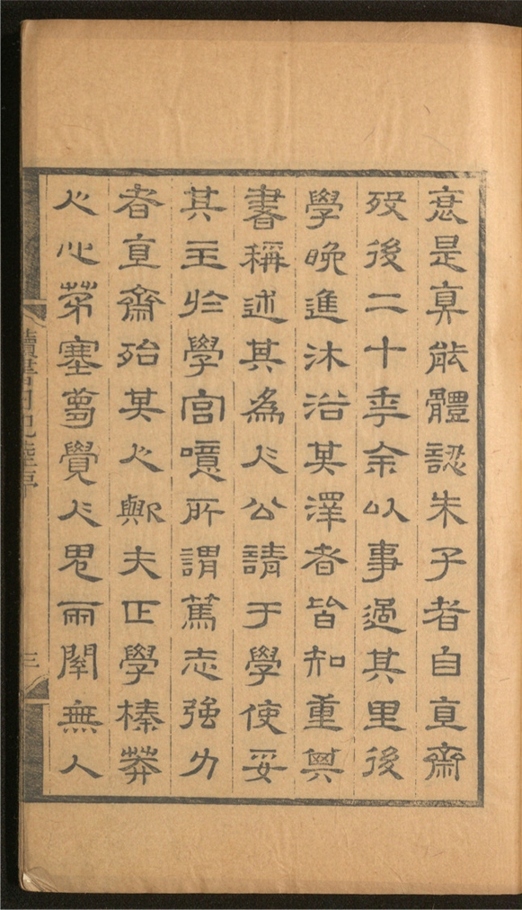 衷是真能體認朱子者自直齋
歿後二十年余以事過其里後
學晚進沐浴其澤者皆知重其
書稱述其為人公請于學使妥
其主於學宮噫所謂篤志強力
者直齋殆其人歟夫正學榛莽
人心茅塞夢覺人鬼兩關無人
讀書日記陸序
三